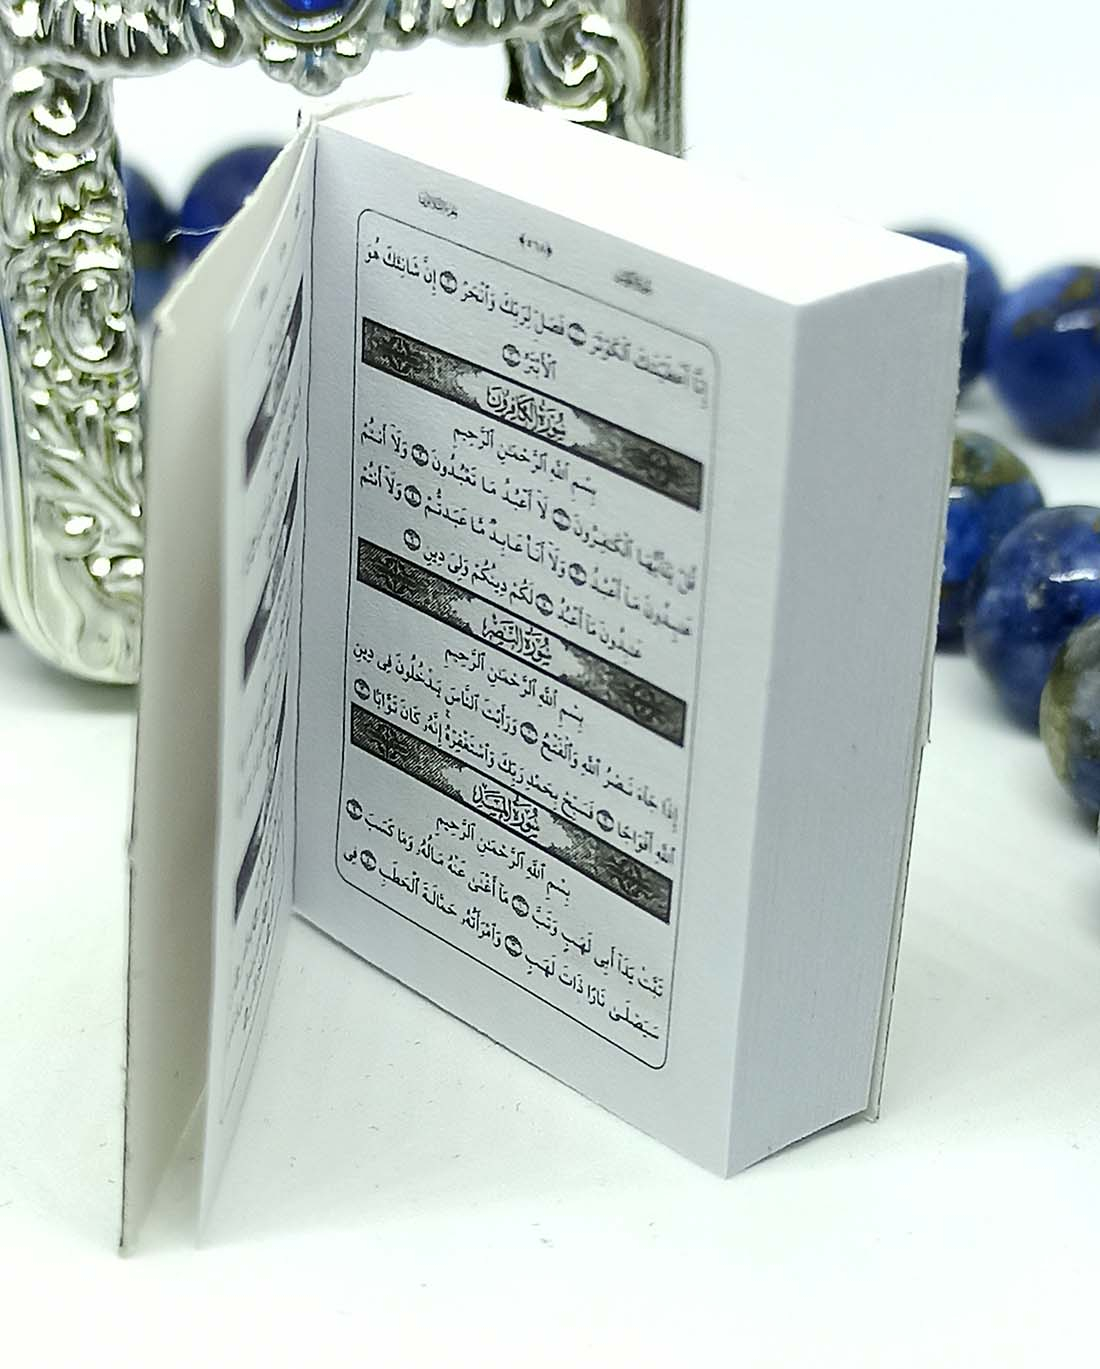 ﴿٥٦٨﴾
إِنَّآ أَعْطَيْنَٰكَ ٱلْكَوْثَرَ ۝ فَصَلِّ لِرَبِّكَ وَٱنْحَرْ ۝ إِنَّ شَانِئَكَ هُوَ
ٱلْأَبْتَرُ ۝
سُورَةُ الكَافِرُونَ
بِسْمِ ٱللَّهِ ٱلرَّحْمَٰنِ ٱلرَّحِيمِ
قُلْ يَٰٓأَيُّهَا ٱلْكَٰفِرُونَ ۝ لَآ أَعْبُدُ مَا تَعْبُدُونَ ۝ وَلَآ أَنتُمْ
عَٰبِدُونَ مَآ أَعْبُدُ ۝ وَلَآ أَنَا۠ عَابِدٌ مَّا عَبَدتُّمْ ۝ وَلَآ أَنتُمْ
عَٰبِدُونَ مَآ أَعْبُدُ ۝ لَكُمْ دِينُكُمْ وَلِىَ دِينِ ۝
سُورَةُ النَّصْرِ
بِسْمِ ٱللَّهِ ٱلرَّحْمَٰنِ ٱلرَّحِيمِ
إِذَا جَآءَ نَصْرُ ٱللَّهِ وَٱلْفَتْحُ ۝ وَرَأَيْتَ ٱلنَّاسَ يَدْخُلُونَ فِى دِينِ
ٱللَّهِ أَفْوَاجًا ۝ فَسَبِّحْ بِحَمْدِ رَبِّكَ وَٱسْتَغْفِرْهُ إِنَّهُۥ كَانَ تَوَّابًۢا ۝
سُورَةُ المَسَدِ
بِسْمِ ٱللَّهِ ٱلرَّحْمَٰنِ ٱلرَّحِيمِ
تَبَّتْ يَدَآ أَبِى لَهَبٍ وَتَبَّ ۝ مَآ أَغْنَىٰ عَنْهُ مَالُهُۥ وَمَا كَسَبَ ۝
سَيَصْلَىٰ نَارًا ذَاتَ لَهَبٍ ۝ وَٱمْرَأَتُهُۥ حَمَّالَةَ ٱلْحَطَبِ ۝ فِى